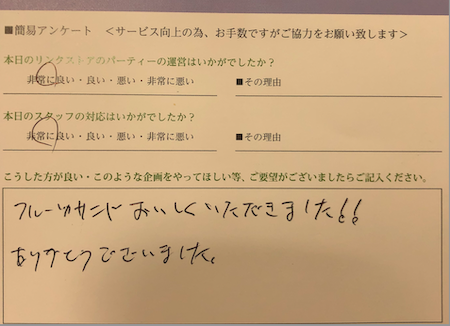 ■簡易アンケート　＜サービス向上の為、お手数ですがご協力をお願い致します＞
本日のリンクストアのパーティーの運営はいかがでしたか？
非常に良い・良い・悪い・非常に悪い　■その理由
本日のスタッフの対応はいかがでしたか？
非常に良い・良い・悪い・非常に悪い　■その理由
こうした方が良い・このような企画をやってほしい等、ご要望がございましたらご記入ください。
フルーツサンドおいしくいただきました!!
ありがとうございました。